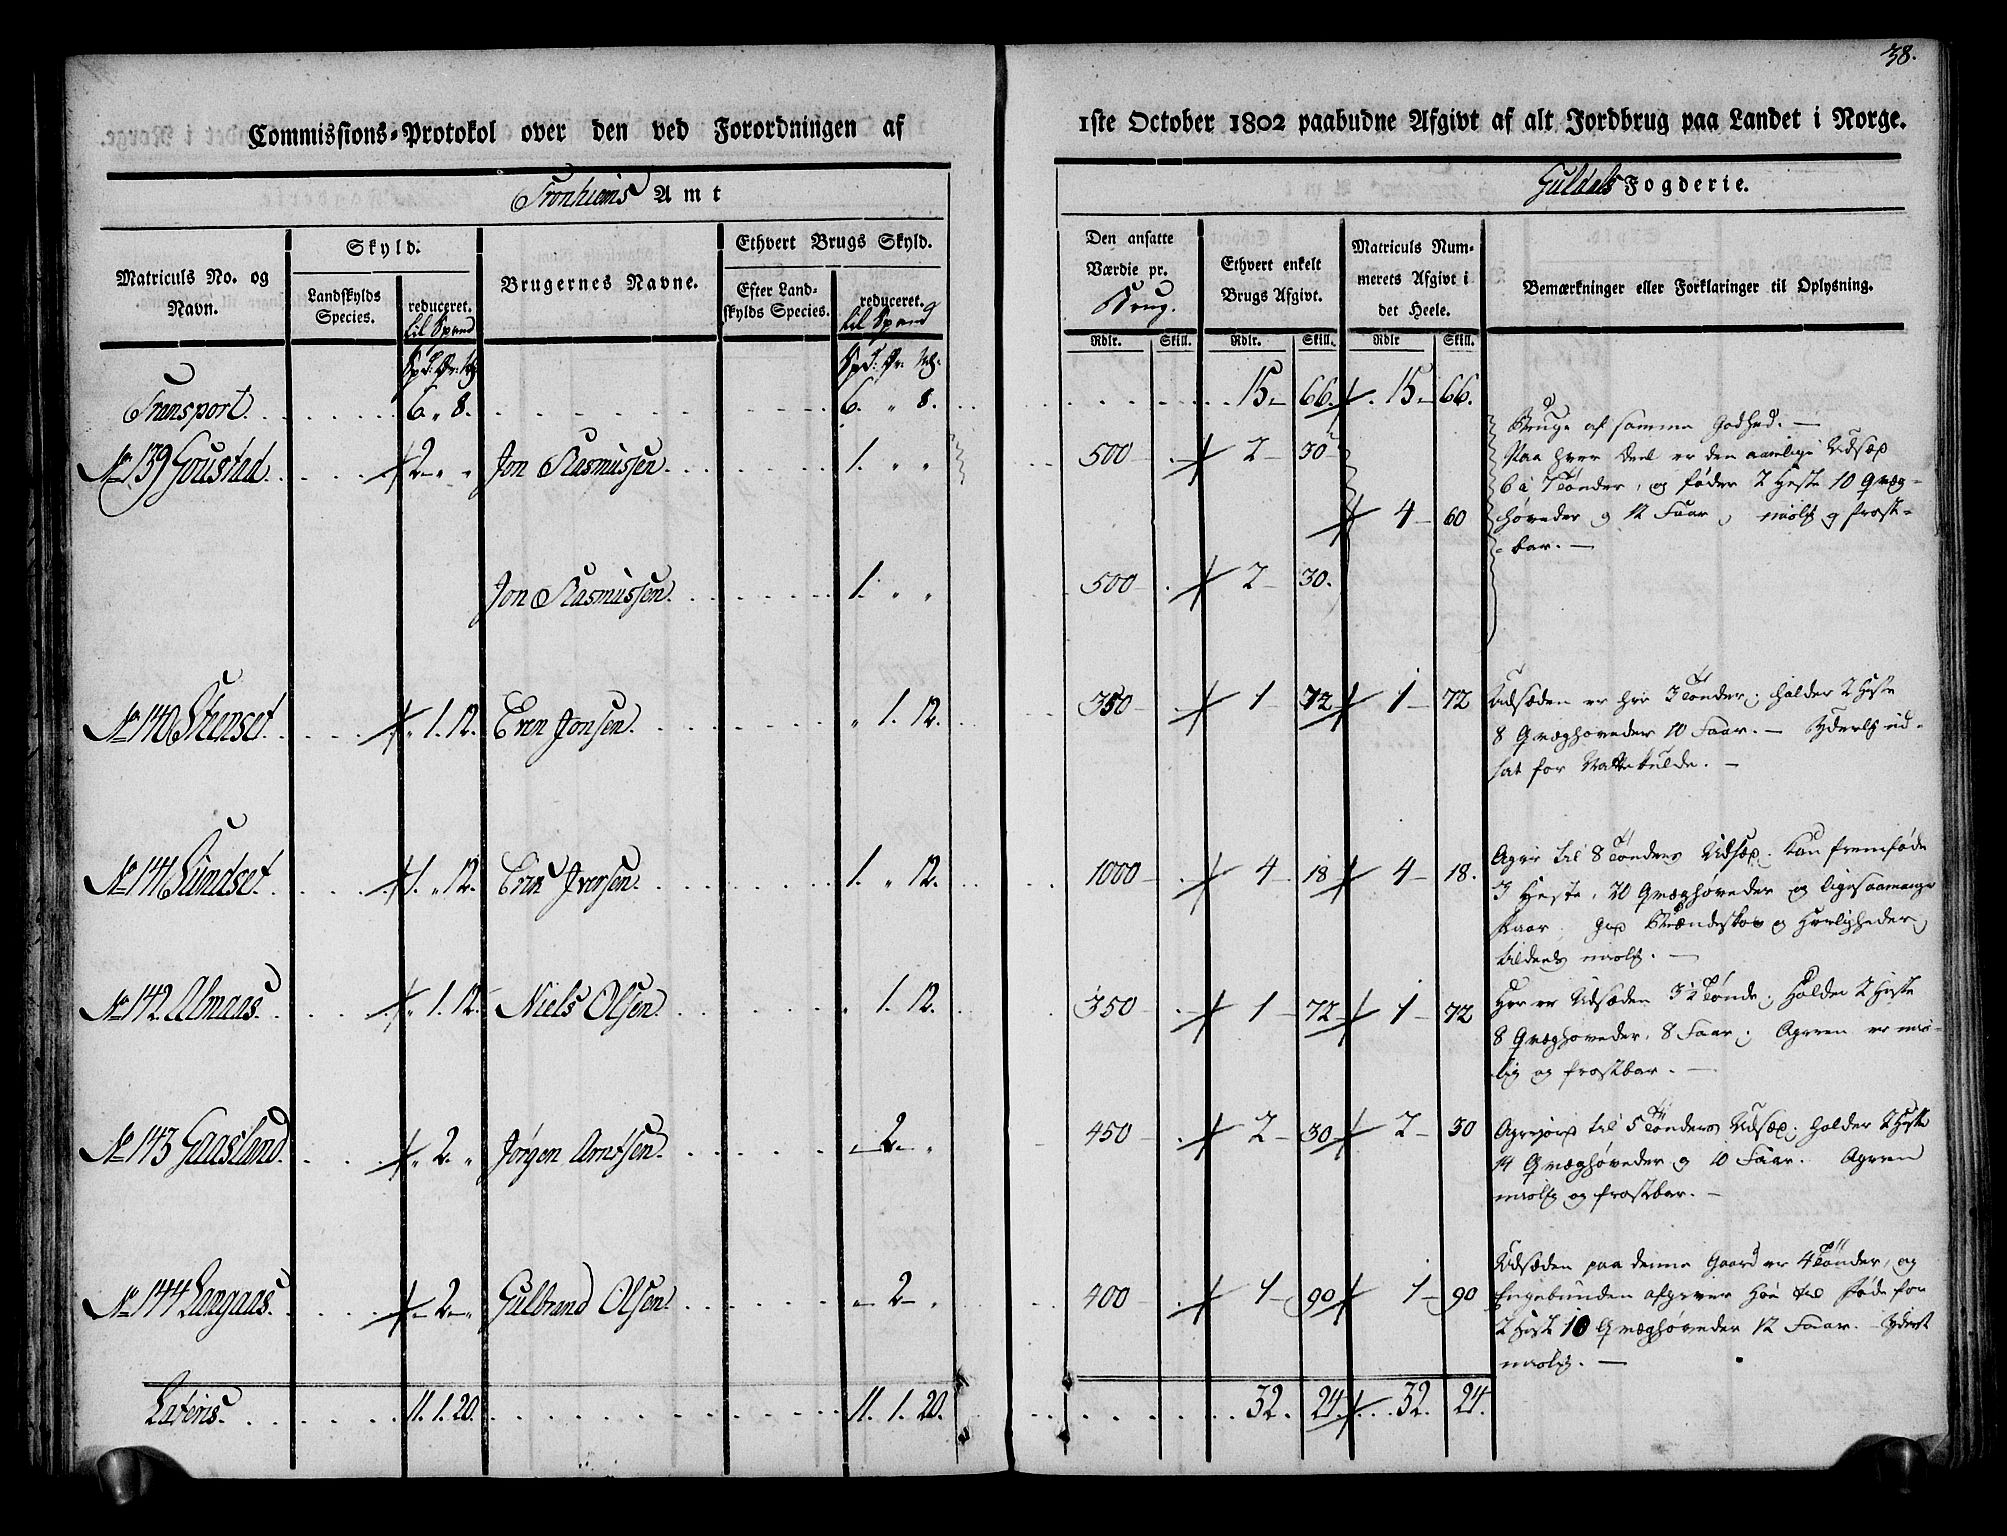 38.
Commissions-Protokol over den ved Forordningen af
1ste October 1802 paabudne Afgivt af alt Jordbrug paa Landet i Norge.
Tronhiems Amt
Guldals Fogderie.
Matriculs No. og Navn.
Skyld.
Landskylds Species.
reduceret. til Spand
Brugernes Navne.
Ethvert Brugs Skyld.
Efter Landskylds Species.
reduceret. til Spand
Den ansatte Værdie pr. Brug.
Ethvert enkelt Brugs Afgivt.
Matriculs Nummerets Afgivt i det Heele.
Bemærkninger eller Forklaringer til Oplysning.
Rdlr. Skill. Rdlr. Skill. Rdlr Skill.
Transport. 6. " 8. 6. " 8. 15 66. 15 66.
No 139 Goustad. 2 " " Jon Rasmussen 1. " " 500 2 30
4 60
Bruge af samme Godhed.
Paa hver Deel er den aarlige Udsæd
6 à 7 Tønder, og føder 2 Heste 10 Qvæg-
høveder og 12 Faar, misl. og frost-
bar.
Jon Rasmussen. 1. " " 500 2 30.
No 140 Stenset " 1. 12. Even Jonsen. " 1. 12. 350 1 72 1 72
Udsæden er her 3 Tønder; holder 2 Heste
8 Qvæghøveder 10 Faar. Yderlig ud-
sat for Nattekulde.
No 141 Sundset 1. " 12. Even Iversen. 1. " 12. 1000 4 18 4 18.
Ager til 8 Tønders Udsæd. kan fremføde
3 Heste, 20 Qvæghøveder og ligesaamange
Faar. god Brændeskov og Herligheder,
tildeels misl.
No 142. Almaas. " 1. 12. Niels Olsen. " 1. 12. 350 1 72 1 72
Her er Udsæden 3½ Tønde; Holder 2 Heste
8 Qvæghøveder, 8 Faar; Ageren er mis-
lig og frostbar.
No 143 Gaasland. " 2. " Jørgen Arntsen. 2 " 450 2 30 2 30
Agerjord til 5 Tønders Udsæd; holder 2 Heste
14 Qvæghøveder og 10 Faar. Ageren
misl. og frostbar.
No 144 Langaas. 2 " Gulbrand Olsen. 2 " 400 1 90 1 90
Udsæden paa denne Gaard er 4 Tønder, og
Engebunden afgiver Høe til Føde for
2 Heste 10 Qvæghøveder 12 Faar. Yderst
misl.
Lateris. 11. 1. 20. 11. 1. 20. 32. 24. 32. 24.